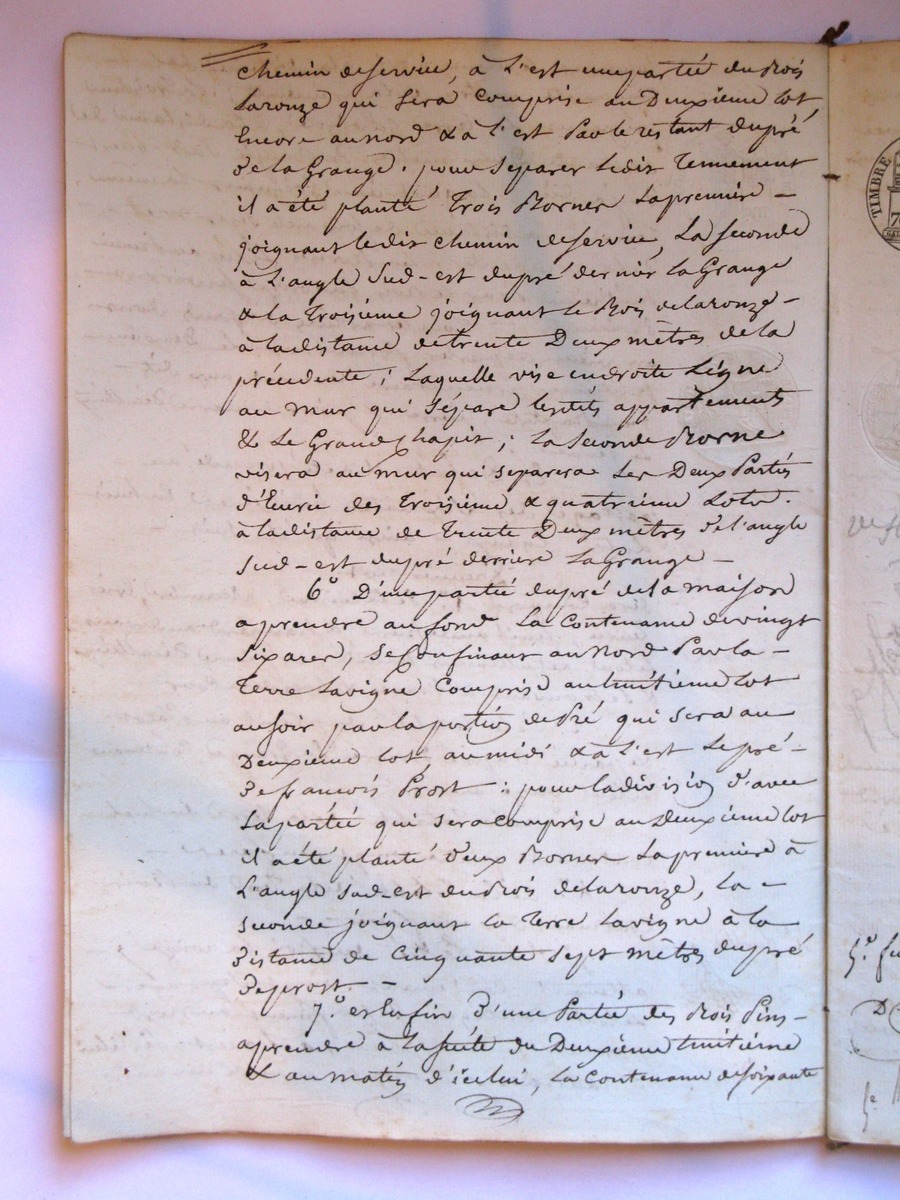 chemin deservice, à L'est unepartie du Bois
Laronze qui sera Comprise au Deuxième lot
Encore aunord & à l'est Par le restant dupré
de la Grange. pour Separer Ledit Tennement
il a été planté Trois Bornes Lapremiere –
joignant ledit chemin deservice, La seconde
à L'angle Sud-est dupré derriér la Grange
& la Troisieme joignant le Bois delaronze –
à ladistance detrente Deux mètres de la
précédente ; Laquelle vise endroite Ligne
au mur qui Sépare lesdits appartements
& Le Grand chapit ; la Seconde Borne
visera au mur qui separera Les Deux Parties
d'Ecurie des Troisieme & quatrieme Lots.
à ladistance de Trente Deux mètres de l'angle
Sud-est dupré derriere LaGrange –
6° D'unepartie dupré dela maison
aprendre aufond La Contenance devingt
Six ares, Seconfinant aunord Par la –
Terre Lavigne Compris au huitieme lot
ausoir par la portion de Pré qui sera au
Deuxieme lot, aumidi & à L'est Lepré –
de francois Prost : pour ladivision d'avec
Lapartie qui sera comprise au Deuxieme lot
il a été planté deux Bornes Lapremiere à
L'angle sud-est du Bois delaronze, la –
seconde joignant la Terre Lavigne à la
distance de Cinquante sept mètres dupré
deprost. –
7° et Enfin d'une Partie des Bois Pins –
aprendre à la suite du Deuxieme huitième
& au matin d'icelui, La Contenance desoixante
TIMBRE